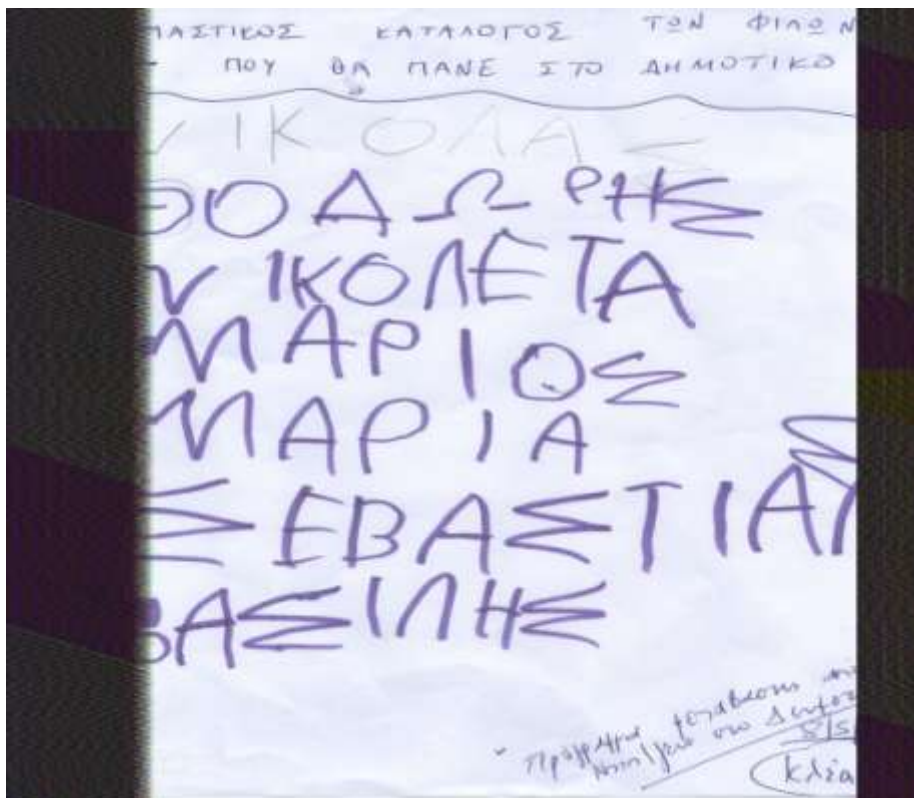 ΜΑΣΤΙΚΟΣ ΚΑΤΑΛΟΓΟΣ ΤΩΝ ΦΙΛΩΝ
ΠΟΥ ΘΑ ΠΑΝΕ ΣΤΟ ΔΗΜΟΤΙΚΟ
ΝΙΚΟΛΑΣ
ΘΟΔΩΡΗΣ
ΝΙΚΟΛΕΤΑ
ΜΑΡΙΟΣ
ΜΑΡΙΑ
ΣΕΒΑΣΤΙΑΝ
ΒΑΣΙΛΗΣ
Πρόγραμμα μετάβασης
στο
8/5
Κλέα